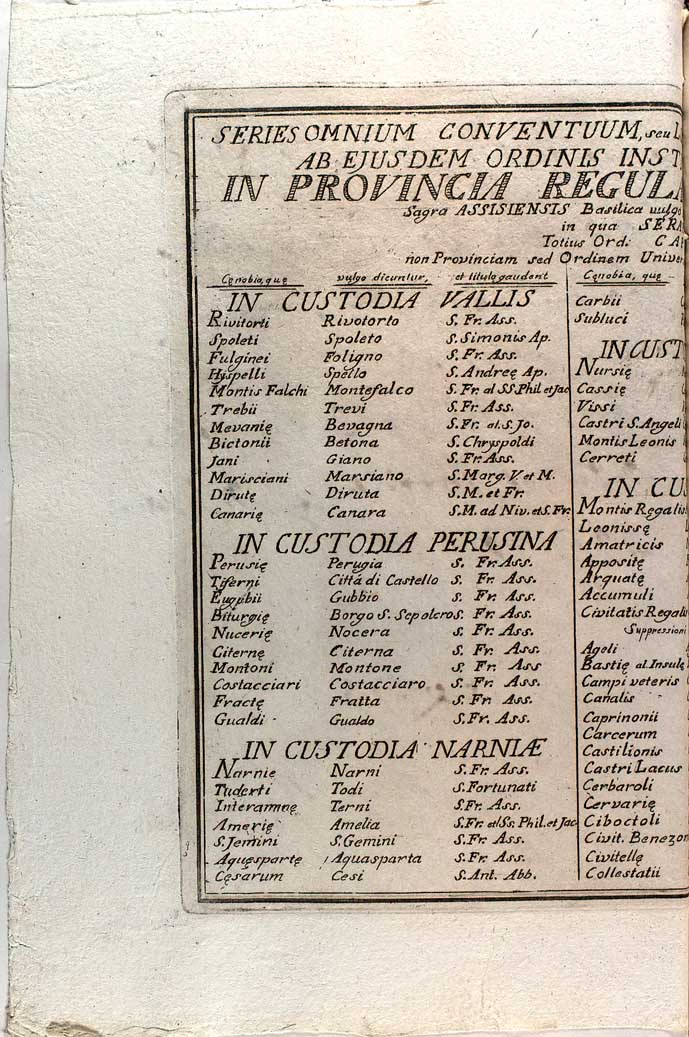 SERIES OMNIUM CONVENTUUM, seu
AB EJUSDEM ORDINIS
IN PROVINCIA
Sagra ASSISIENSIS Basilica vulgo
in qua
Totius Ord:
non Provinciam sed Ordinem
Cęnobia, quę vulgo dicuntur, et titulo gaudent
IN CUSTODIA VALLIS
Rivitorti Rivotorto S. Fr. Ass.
Spoleti Spoleto S. Simonis Ap.
Fulginei Foligno S. Fr. Ass.
Hyspelli Spello S. Andreę Ap.
Montis Falchi Montefalco S. Fr. al SS. Phil. et Jac
Trebii Trevi S. Fr. Ass.
Mevanię Bevagna S. Fr. al. S. Jo.
Bictonii Betona S. Chryspoldi
Jani Giano S. Fr. Ass.
Marisciani Marsiano S. Marg. V. et M.
Dirutę Diruta S. M. et Fr.
Canarię Canara S. M. ad Niv. et S. Fr.
IN CUSTODIA PERUSINA
Perusię Perugia S. Fr. Ass.
Tiferni Cittá di Castello S. Fr. Ass.
Eugubii Gubbio S. Fr. Ass.
Biturgię Borgo S. Sepolcro S. Fr. Ass.
Nucerię Nocera S. Fr. Ass.
Citernę Citerna S. Fr. Ass.
Montoni Montone S. Fr. Ass
Costacciari Costacciaro S. Fr. Ass.
Fractę Fratta S. Fr. Ass.
Gualdi Gualdo S. Fr. Ass.
IN CUSTODIA NARNIÆ
Narnie Narni S. Fr. Ass.
Tuderti Todi S. Fortunati
Interamnę Terni S. Fr. Ass.
Amerię Amelia S. Fr. et Ss. Phil. et Jac
S. Jemini S. Gemini S. Fr. Ass.
Aquespartę Aquasparta S. Fr. Ass.
Cęsarum Cesi S. Ant. Abb.
Cęnobia, quę
Carbii
Subluci
IN
Nursię
Cassię
Vissi
Castri S. Angeli
Montis Leonis
Cerreti
IN
Montis Regalis
Leonissę
Amatricis
Appositę
Arquatę
Accumuli
Civitatis Regalis
Suppressioni
Ageli
Bastię al. Insulę
Campi veteris
Canalis
Caprinonii
Carcerum
Castilionis
Castri Lacus
Cerbaroli
Cervarię
Ciboctoli
Civit.
Civitellę
Collestatii